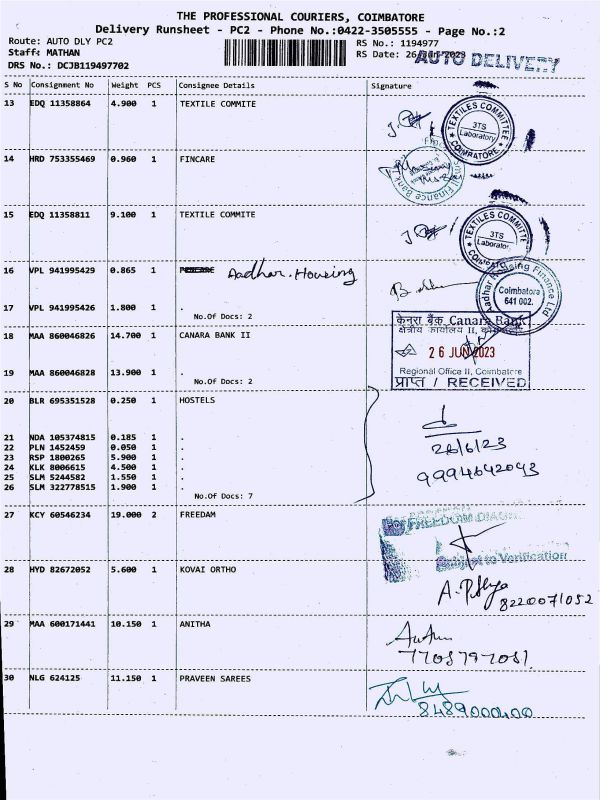 THE PROFESSIONAL COURIERS, COIMBATORE
Delivery Runsheet - PC2 - Phone No.:0422-3505555 - Page No.:2
Route: AUTO DLY PC2 RS No.: 1194977
Staff: MATHAN RS Date: 26
AUTO DELIVERY
DRS No.: DCJB119497702
S No Consignment No Weight PCS Consignee Details Signature
13 EDQ 11358864 4.900 1 TEXTILE COMMITE
TEXTILES COMMITTEE
3TS
Laboratory
COIMBATORE
14 HRD 753355469 0.960 1 FINCARE
Small Finance Bank
15 EDQ 11358811 9.100 1 TEXTILE COMMITE
TEXTILES COMMITTEE
3TS
Laboratory
16 VPL 941995429 0.865 1 Aadhar. Housing
Aadhar Housing Finance Ltd
Coimbatore
641 002.
17 VPL 941995426 1.800 1 .
No.Of Docs: 2
18 MAA 860046826 14.700 1 CANARA BANK II
केनरा बैंक Canara Bank
क्षेत्रीय कार्यालय II,
26 JUN 2023
Regional Office II, Coimbatore
प्राप्त / RECEIVED
19 MAA 860046828 13.900 1 .
No.Of Docs: 2
20 BLR 695351528 0.250 1 HOSTELS
26/6/23
9994642043
21 NDA 105374815 0.185 1 .
22 PLN 1452459 0.050 1 .
23 RSP 1800265 5.900 1 .
24 KLK 8006615 4.500 1 .
25 SLM 5244582 1.550 1 .
26 SLM 322778515 1.900 1 .
No.Of Docs: 7
27 KCY 60546234 19.000 2 FREEDAM
For FREEDOM DIAG
Subject to Verification
28 HYD 82672052 5.600 1 KOVAI ORTHO
8220071052
29 MAA 600171441 10.150 1 ANITHA
7705797051
30 NLG 624125 11.150 1 PRAVEEN SAREES
8489000400